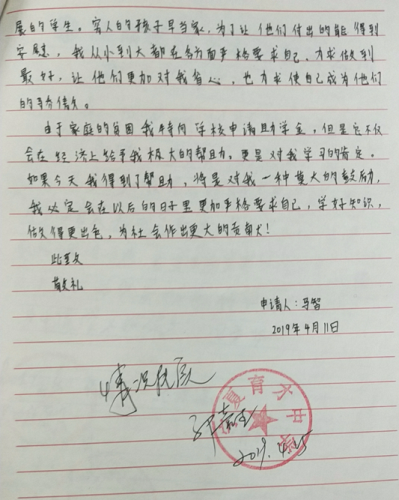 展的学生。穷人的孩子早当家，为了让他们付出的能得到
安慰，我从小到大都在各方面严格要求自己，力求做到
最好，让他们更加对我省心，也力求使自己成为他们
的
由于家庭的贫困我特向学校申请助学金，但是它不仅
会在经济上给予我极大的帮助，更是对我学习的肯定。
如果今天我得到了帮助，将是对我一种莫大的鼓励，
我必定会在以后的日子里更加严格要求自己，学好知识，
做得更出色，为社会作出更大的贡献！
此致
敬礼
申请人：马智
2019年4月11日
情况属实
夏育才中学
2019.4.15